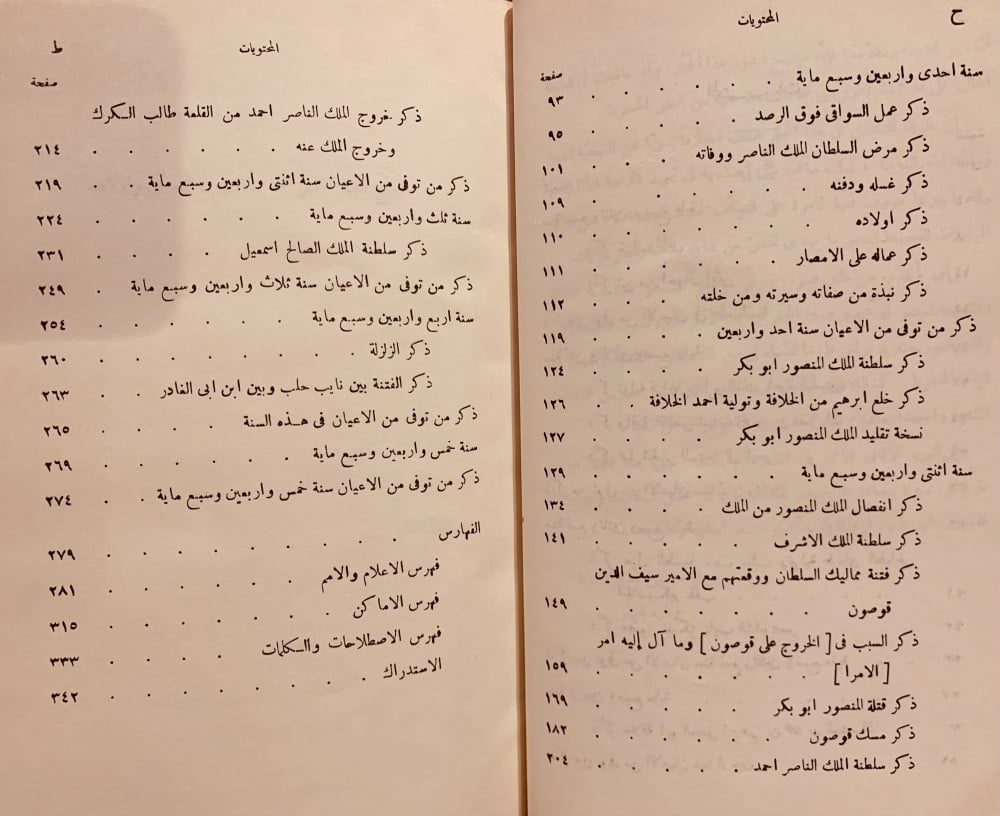 ح
المحتويات
صفحة
سنة احدى واربعين وسبع ماية . . . . . ٩٣
ذكر عمل السواقى فوق الرصد . . . . . ٩٥
ذكر مرض السلطان الملك الناصر ووفاته . . . ١٠١
ذكر غسله ودفنه . . . . . . . ١٠٩
ذكر اولاده . . . . . . . ١١٠
ذكر عماله على الامصار . . . . . . ١١١
ذكر نبذة من صفاته وسيرته ومن خلته . . . . ١١٢
ذكر من توفى من الاعيان سنة احد واربعين . . . ١١٩
ذكر سلطنة الملك المنصور ابو بكر . . . . ١٢٤
ذكر خلع ابرهيم من الخلافة وتولية احمد الخلافة . ١٢٦
نسخة تقليد الملك المنصور ابو بكر . . . . ١٢٧
سنة اثنتى واربعين وسبع ماية . . . . . ١٢٩
ذكر انفصال الملك المنصور من الملك . . . . ١٣٤
ذكر سلطنة الملك الاشرف . . . . . ١٤١
ذكر فتنة مماليك السلطان ووقعتهم مع الامير سيف الدين
قوصون . . . . . . . ١٤٩
ذكر السبب فى [ الخروج على قوصون ] وما آل إليه امر
[ الامرا ] . . . . . . . ١٥٩
ذكر قتلة المنصور ابو بكر . . . . . ١٦٩
ذكر مسك قوصون . . . . . . ١٨٢
ذكر سلطنة الملك الناصر احمد . . . . . ٢٠٤
المحتويات
ط
صفحة
ذكر خروج الملك الناصر احمد من القلعة طالب الكرك
وخروج الملك عنه . . . . . . ٢١٤
ذكر من توفى من الاعيان سنة اثنتى واربعين وسبع ماية . . ٢١٩
سنة ثلث واربعين وسبع ماية . . . . . . ٢٢٤
ذكر سلطنة الملك الصالح اسمعيل . . . . ٢٣١
ذكر من توفى من الاعيان سنة ثلاث واربعين وسبع ماية . ٢٤٩
سنة اربع واربعين وسبع ماية . . . . . . ٢٥٤
ذكر الزلزلة . . . . . . . . ٢٦٠
ذكر الفتنة بين نايب حلب وبين ابن ابى الغادر . . ٢٦٣
ذكر من توفى من الاعيان فى هذه السنة . . . . ٢٦٥
سنة خمس واربعين وسبع ماية . . . . . . ٢٦٩
ذكر من توفى من الاعيان سنة خمس واربعين وسبع ماية . . ٢٧٤
الفهارس . . . . . . . . . ٢٧٩
فهرس الاعلام والامم . . . . . . ٢٨١
فهرس الاماكن . . . . . . . ٣١٥
فهرس الاصطلاحات والكلمات . . . . ٣٣٣
الاستدراك . . . . . . . . ٣٤٢